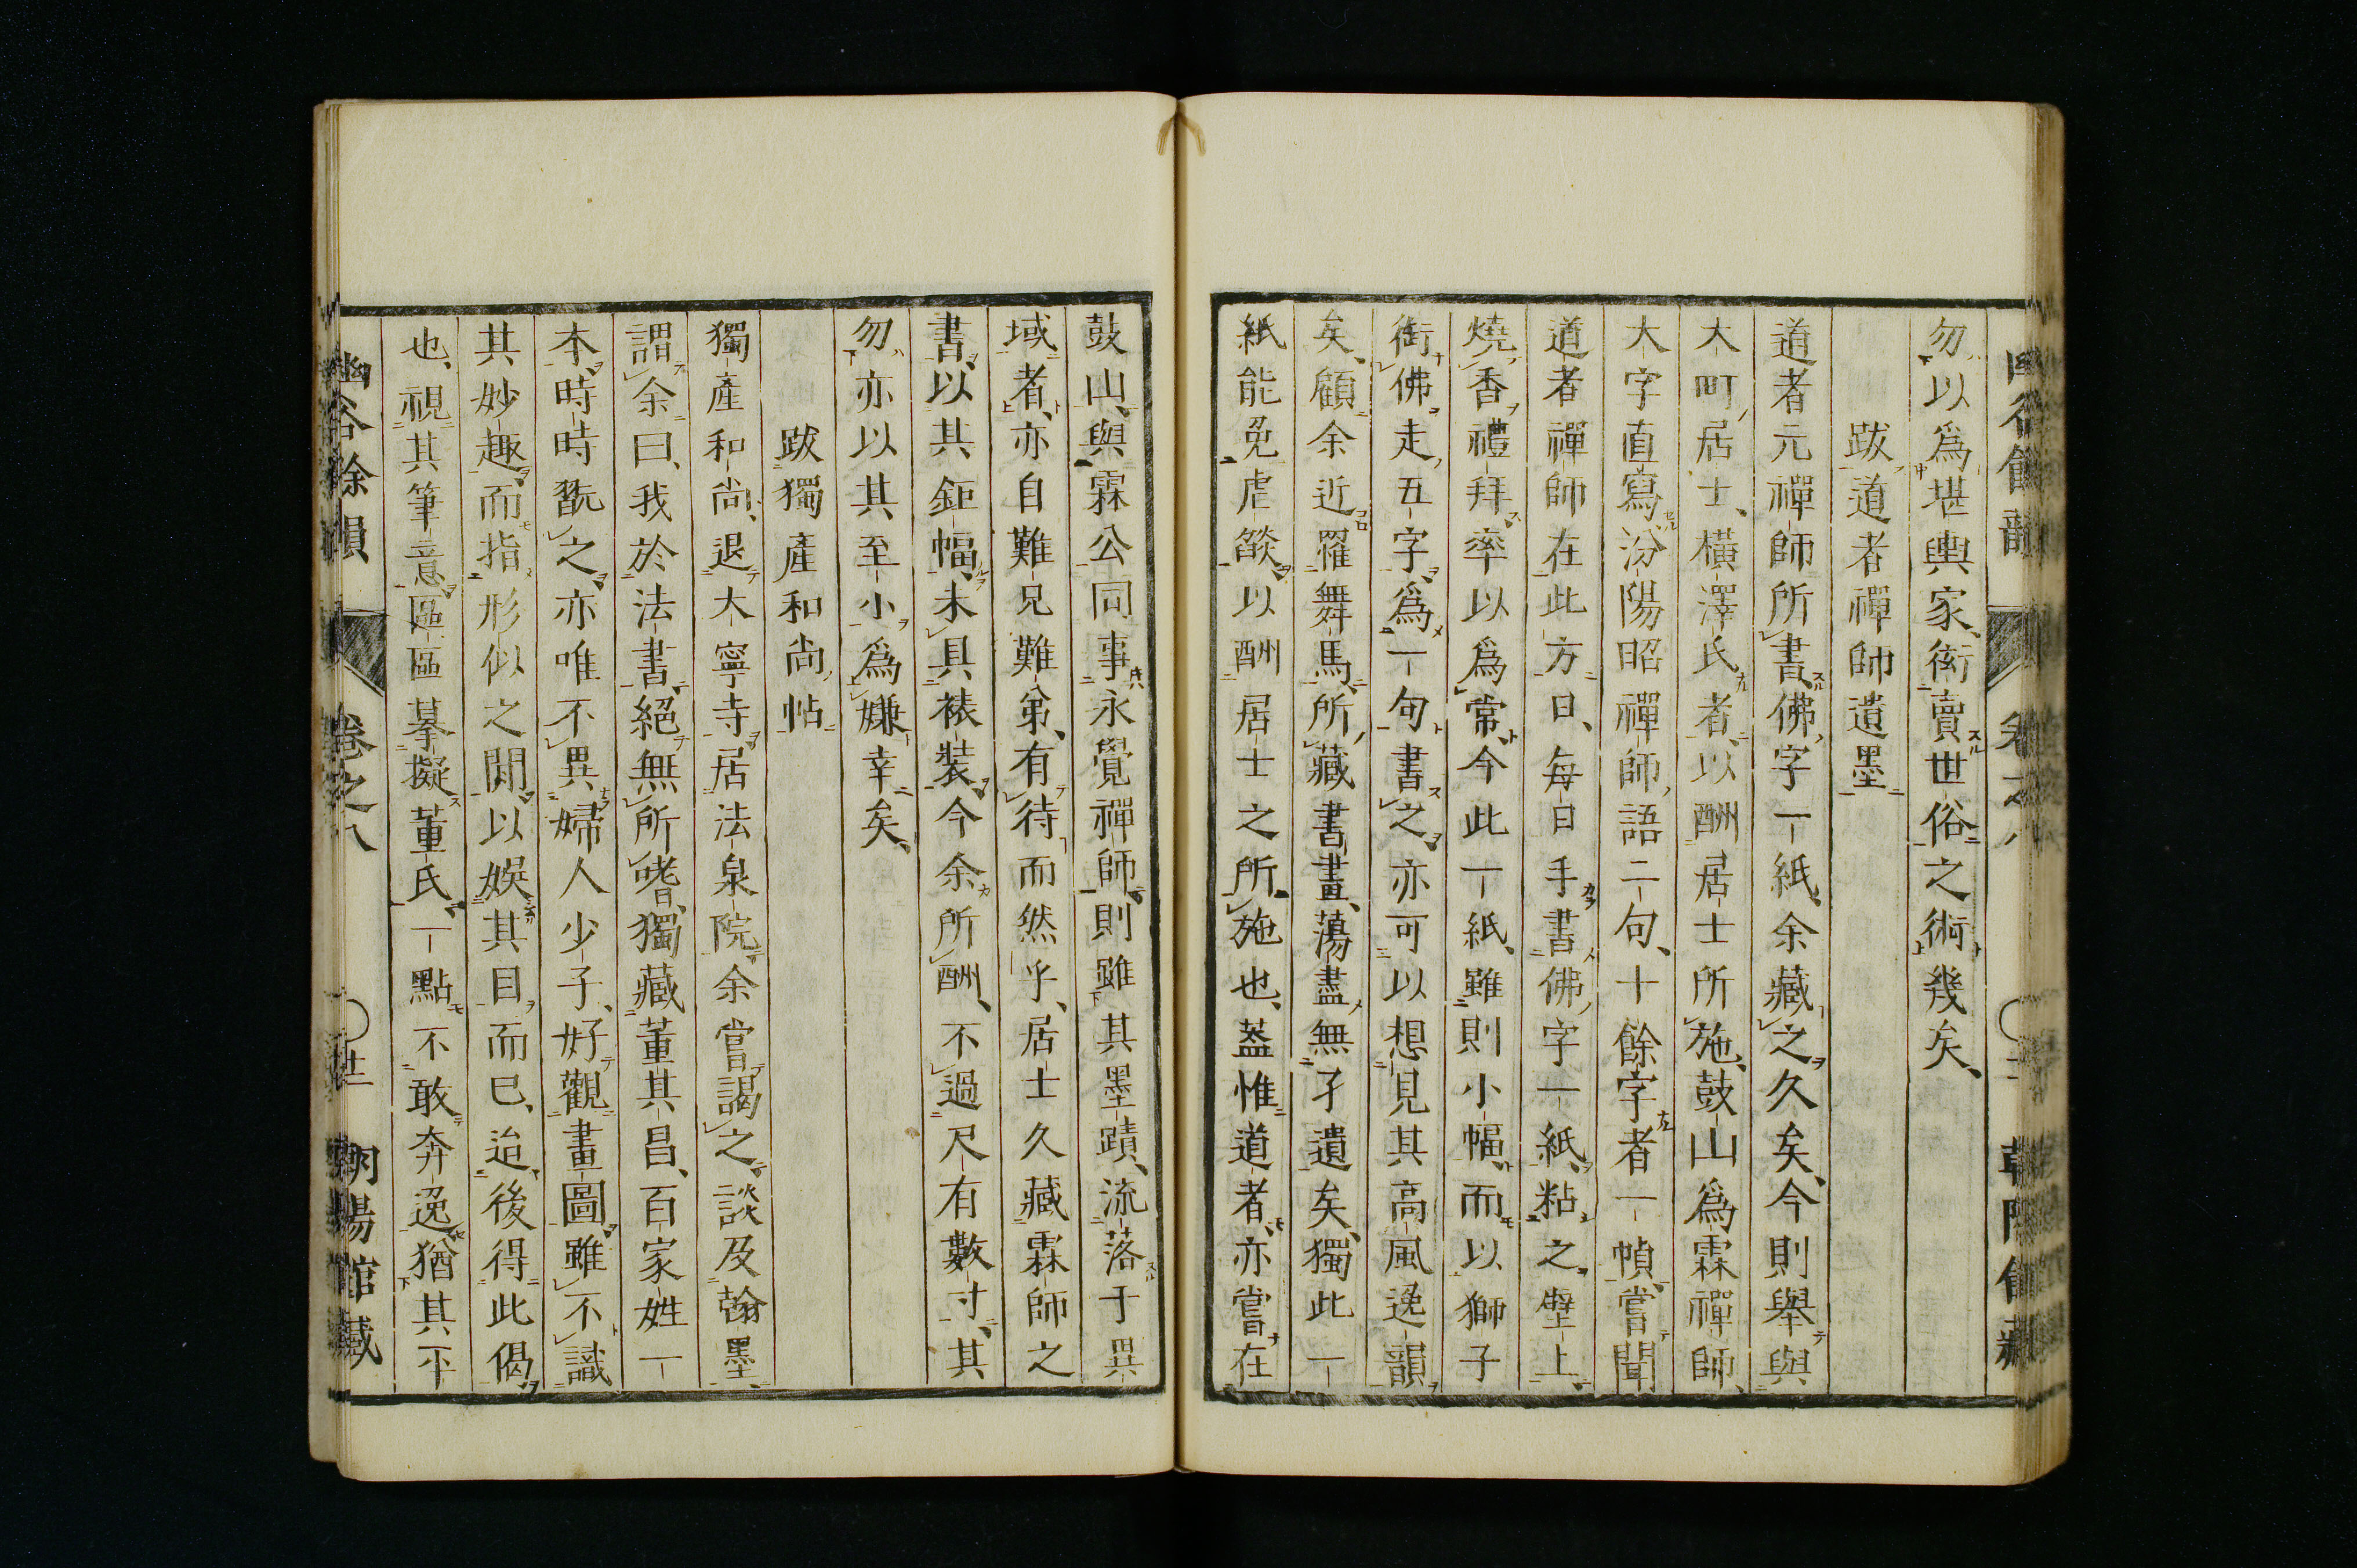 勿以爲堪輿家衒賣世俗之術幾矣、
跋道者禪師遺墨
道者元禪師所書佛字一紙、余藏之久矣、今則擧與
大町居士、橫澤氏者、以酬居士所施、鼓山爲霖禪師、
大字直寫汾陽昭禪師語二句、十餘字者一幀、嘗聞
道者禪師在此方日、每日手書佛字一紙、粘之壁上、
燒香禮拜率以爲常、今此一紙、雖則小幅、而以獅子
銜佛走五字、爲一句書之、亦可以想見其高風逸韻
矣、顧余近罹舞馬、所藏書畫、蕩盡無孑遺矣、獨此一
紙能免虐燄、以酬居士之所施也、葢惟道者、亦嘗在
鼓山、與霖公同事永覺禪師、則雖其墨蹟、流落于異
域者、亦自難兄難弟、有待而然乎、居士久藏霖師之
書、以其鉅幅、未具裱裝、今余所酬、不過尺有數寸、其
勿亦以其至小爲嫌幸矣、
跋獨產和尙帖
獨產和尙、退大寧寺居法泉院、余嘗謁之、談及翰墨、
謂余曰、我於法書、絕無所嗜、獨藏董其昌、百家姓一
本、時時翫之、亦唯不異婦人少子、好觀畫圖、雖不識
其妙趣、而指形似之間、以娛其目而已、迨後得此偈
也、視其筆意區區摹擬董氏、一點不敢奔逸猶其平
幽谷餘韻 卷之八 廿 朝陽館藏